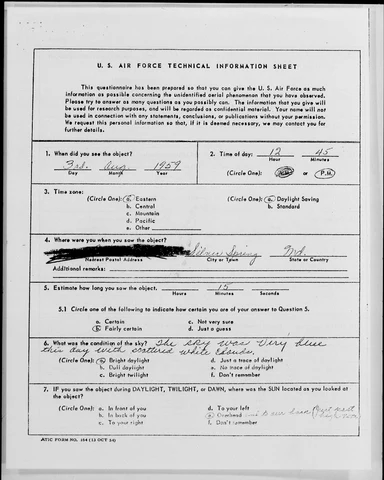 U. S. AIR FORCE TECHNICAL INFORMATION SHEET
This questionnaire has been prepared so that you can give the U. S. Air Force as much
information as possible concerning the unidentified aerial phenomenon that you have observed.
Please try to answer as many questions as you possibly can. The information that you give will
be used for research purposes, and will be regarded as confidential material. Your name will not
be used in connection with any statements, conclusions, or publications without your permission.
We request this personal information so that, if it is deemed necessary, we may contact you for
further details.
1. When did you see the object?
3rd. Aug. 1959
Day Month Year
2. Time of day: 12 45
Hour Minutes
(Circle One): or P.M.
3. Time zone:
(Circle One): a. Eastern
b. Central
c. Mountain
d. Pacific
e. Other
(Circle One): a. Daylight Saving
b. Standard
4. Where were you when you saw the object?
Silver Spring Md.
Nearest Postal Address City or Town State or Country
Additional remarks:
5. Estimate how long you saw the object. 15
Hours Minutes Seconds
5.1 Circle one of the following to indicate how certain you are of your answer to Question 5.
a. Certain
b. Fairly certain
c. Not very sure
d. Just a guess
6. What was the condition of the sky? The sky was very blue
this day with scattered white clouds.
(Circle One): a. Bright daylight
b. Dull daylight
c. Bright twilight
d. Just a trace of daylight
e. No trace of daylight
f. Don't remember
7. IF you saw the object during DAYLIGHT, TWILIGHT, or DAWN, where was the SUN located as you looked at
the object?
(Circle One): a. In front of you
b. In back of you
c. To your right
d. To your left
e. Overhead
f. Don't remember
ATIC FORM NO. 164 (13 OCT 54)